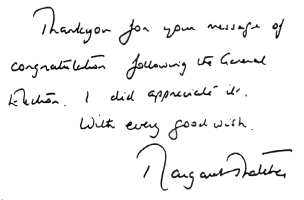 Thankyou for your message of
congratulation following the General
Election. I did appreciate it.
With every good wish.
Margaret Thatcher